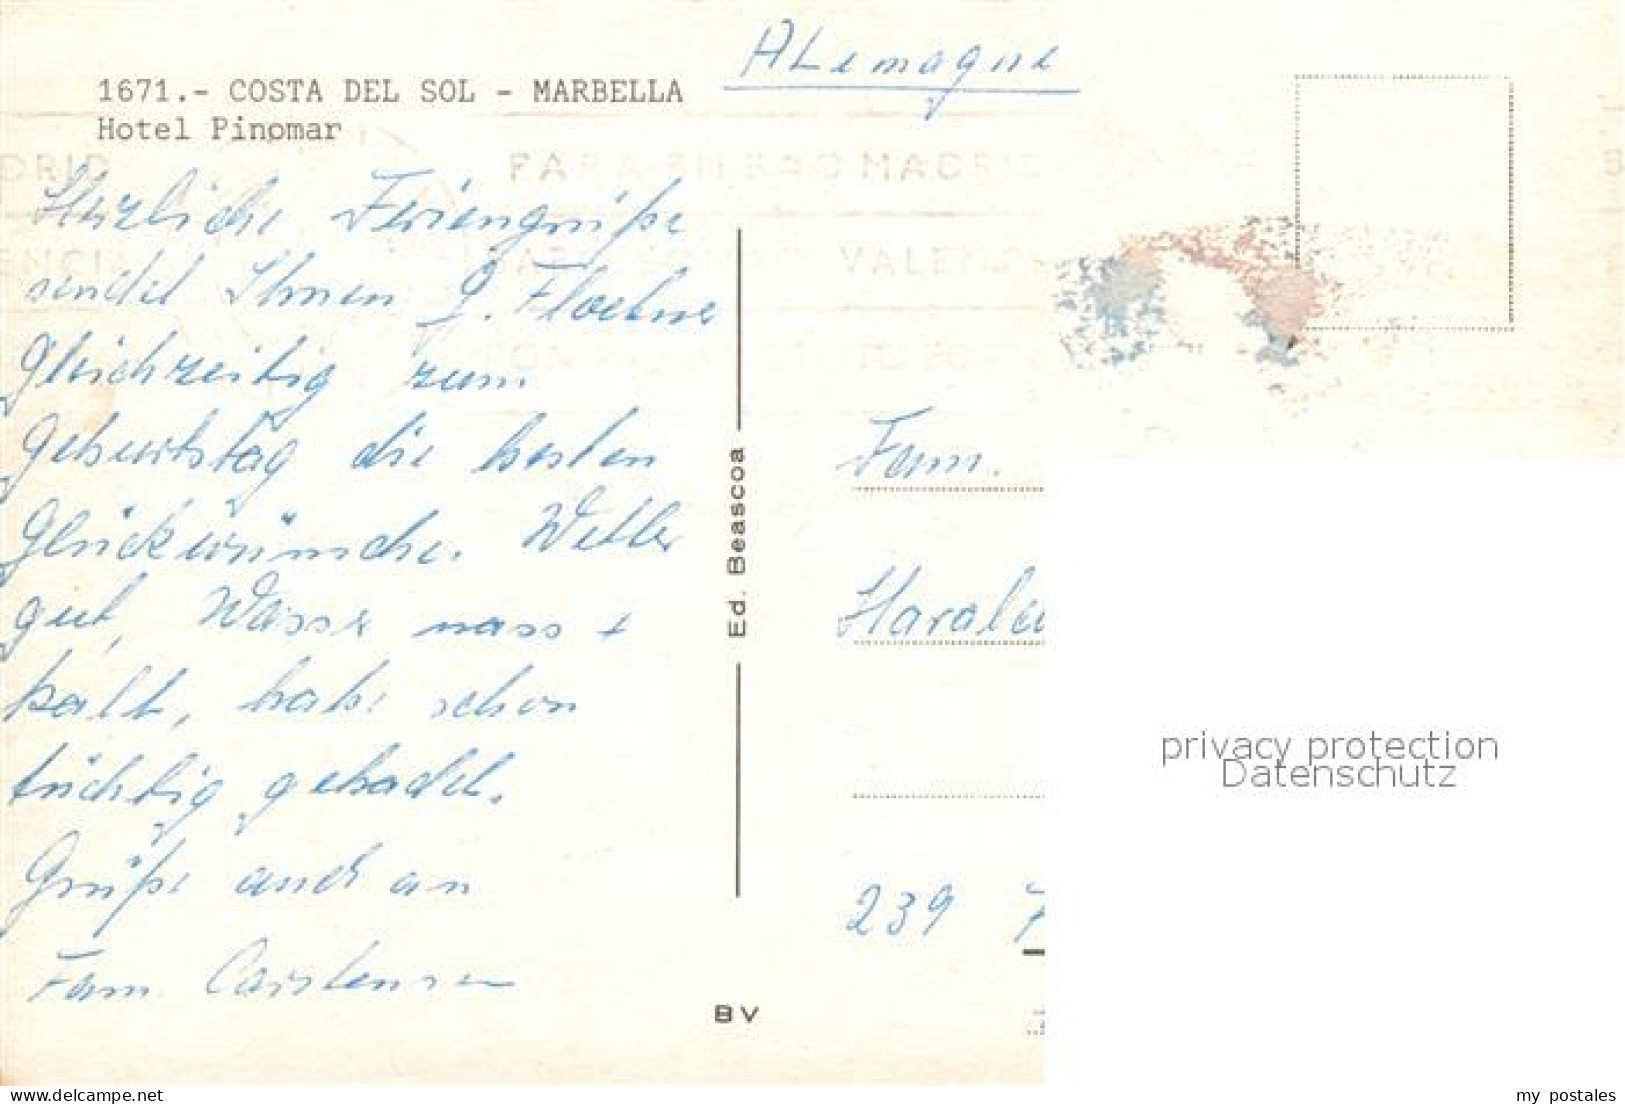 Alemagne
1671.- COSTA DEL SOL - MARBELLA
Hotel Pinomar
PARA BILBAO MADRID
VALENC
Herzliche Feriengrüße
sendet Ihnen
Gleichzeitig zum
Geburtstag die besten
Glückwünsche. Wetter
gut, Wasser nass +
kalt, habe schon
tüchtig gebadet.
Grüße auch an
Fam. Carstensen
Ed. Beascoa
BV
Fam.
239 7
privacy protection
Datenschutz
my postales